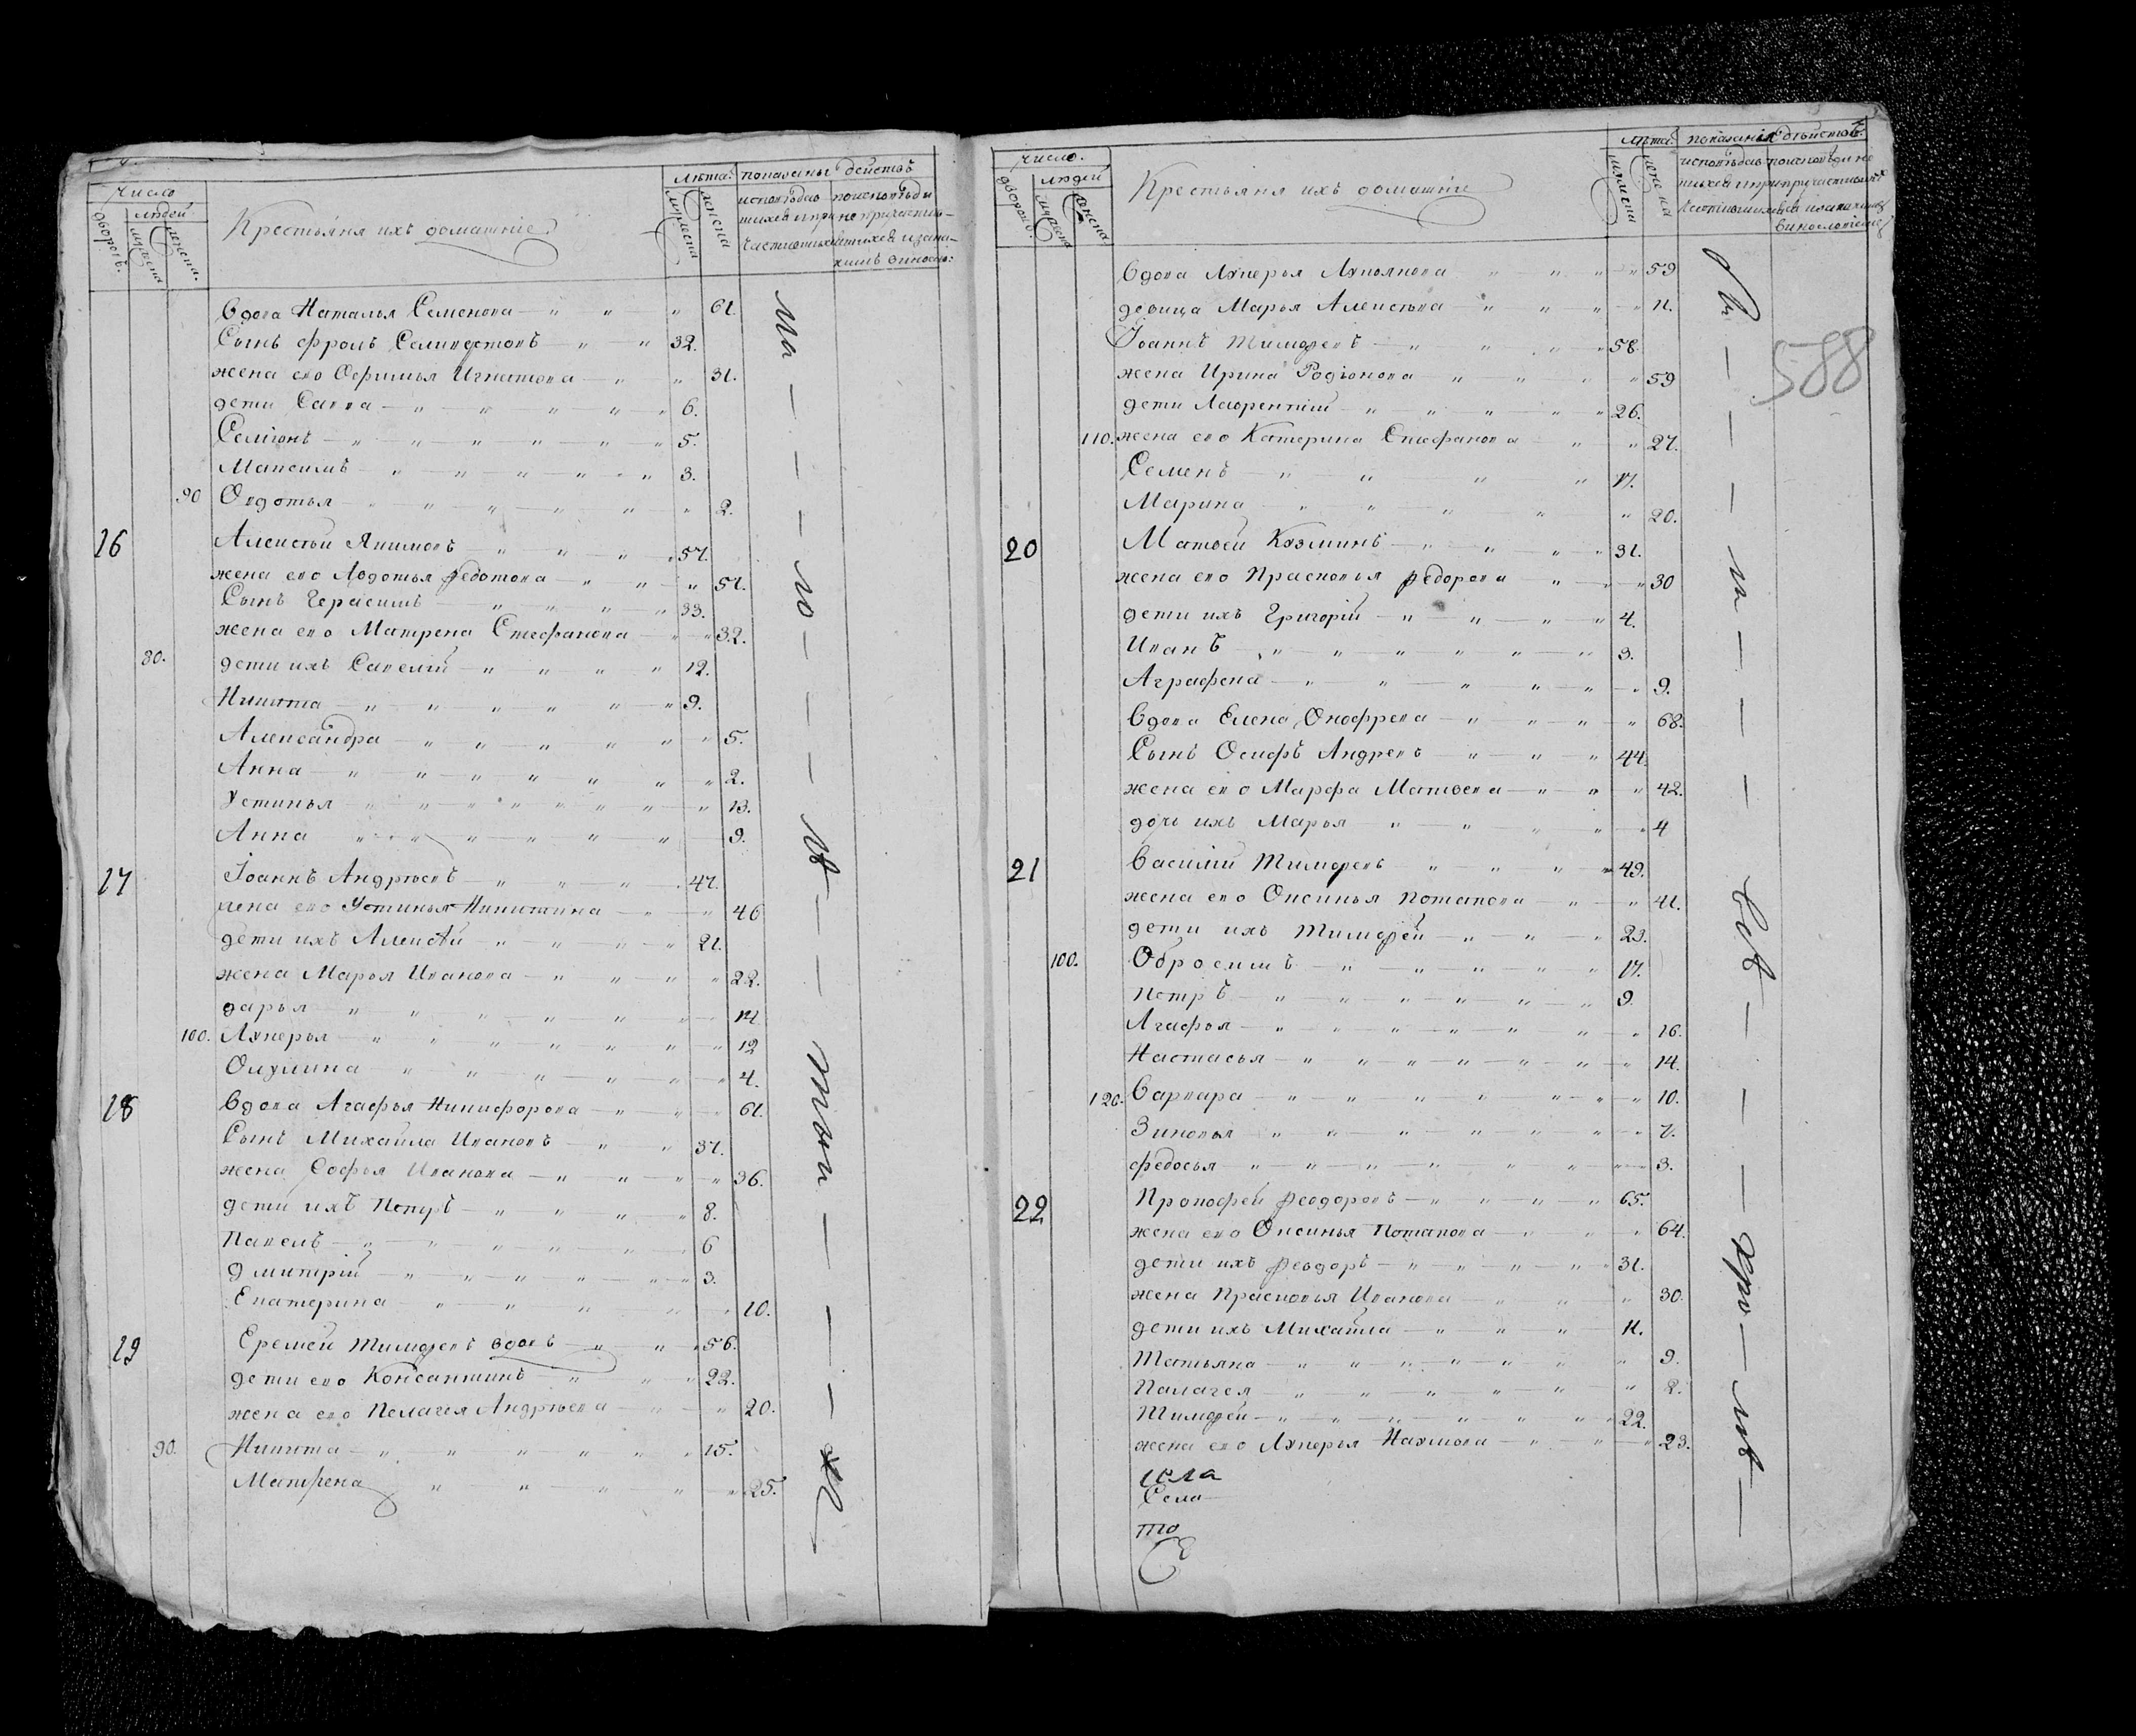 Число
людей
дворовъ.
мужеска
женска.
Крестьяня ихъ домашніе
лѣта.
мужеска
женска
показаны действъ
исповѣдав
шихся и при
частившихся
поисповѣди
но не причастив-
шихся
Вдова Наталья Семенова 61.
Сынъ Фролъ Селиверстовъ 32.
жена ево Офимья Игнатова 31.
дети Савва 6.
Семіонъ 5.
Максимъ 3.
90 Овдотья 2.
16 Алексѣй Якимовъ 57.
жена ево Авдотья Федотова 51.
Сынъ Герасимъ 33.
жена ево Матрена Стефанова 32.
80. дети ихъ Савелій 12.
Никита 9.
Александра 5.
Анна 2.
Устинья 13.
Анна 9.
17 Іоаннъ Андрѣевъ 47.
жена ево Устинья Никитина 46
дети ихъ Алексѣй 21.
жена Марья Иванова 22.
дарья 14
100. Лукерья 12
Окулина 4.
18 Вдова Агафья Никифорова 61.
Сынъ Михайла Ивановъ 37.
жена Софья Иванова 36.
дети ихъ Петръ 8.
Павелъ 6
дмитрій 3.
Екатерина 10.
19 Еремей Тимофевъ вдовъ 56.
дети ево Консантинъ 22.
жена ево Пелагея Андрѣева 20.
90. Никита 15.
Матрена 25.
число.
людей
дворовъ.
мужеска
женска
Крестьяня ихъ домашніе
лѣта.
мужеска
женска
показанія действъ.
Вдова Лукерья Лукоянова 59
девица Марья Алексѣва 11.
Іоаннъ Тимофевъ 58.
жена Ирина Родіонова 59
дети Лаврентій 26.
110. жена ево Катерина Стефанова 27.
Семенъ 17.
Марина 20.
20 Матвей Козминъ 31.
жена ево Прасковья Федорова 30
дети ихъ Григорій 4.
Иванъ 3.
Аграфена 9.
Вдова Елена Онофрева 68.
Сынъ Осифъ Андревъ 44.
жена ево Марфа Матвева 42.
дочь ихъ Марья 4
21 Василій Тимофевъ 49.
жена ево Оксинья Потапова 41.
дети ихъ Тимофей 23.
100. Обросимъ 17.
Петръ 9.
Агафья 16.
Настасья 14.
120. Варвара 10.
Зиновья 7.
Федосья 3.
22 Прокофей Феодоровъ 65.
жена ево Оксинья Потапова 64.
дети ихъ Феодоръ 31.
жена Прасковья Иванова 30.
дети ихъ Михайла 11.
Татьяна 9.
Палагея 2.
Тимофей 22.
жена ево Лукерья Наумова 23.
Села
то
588